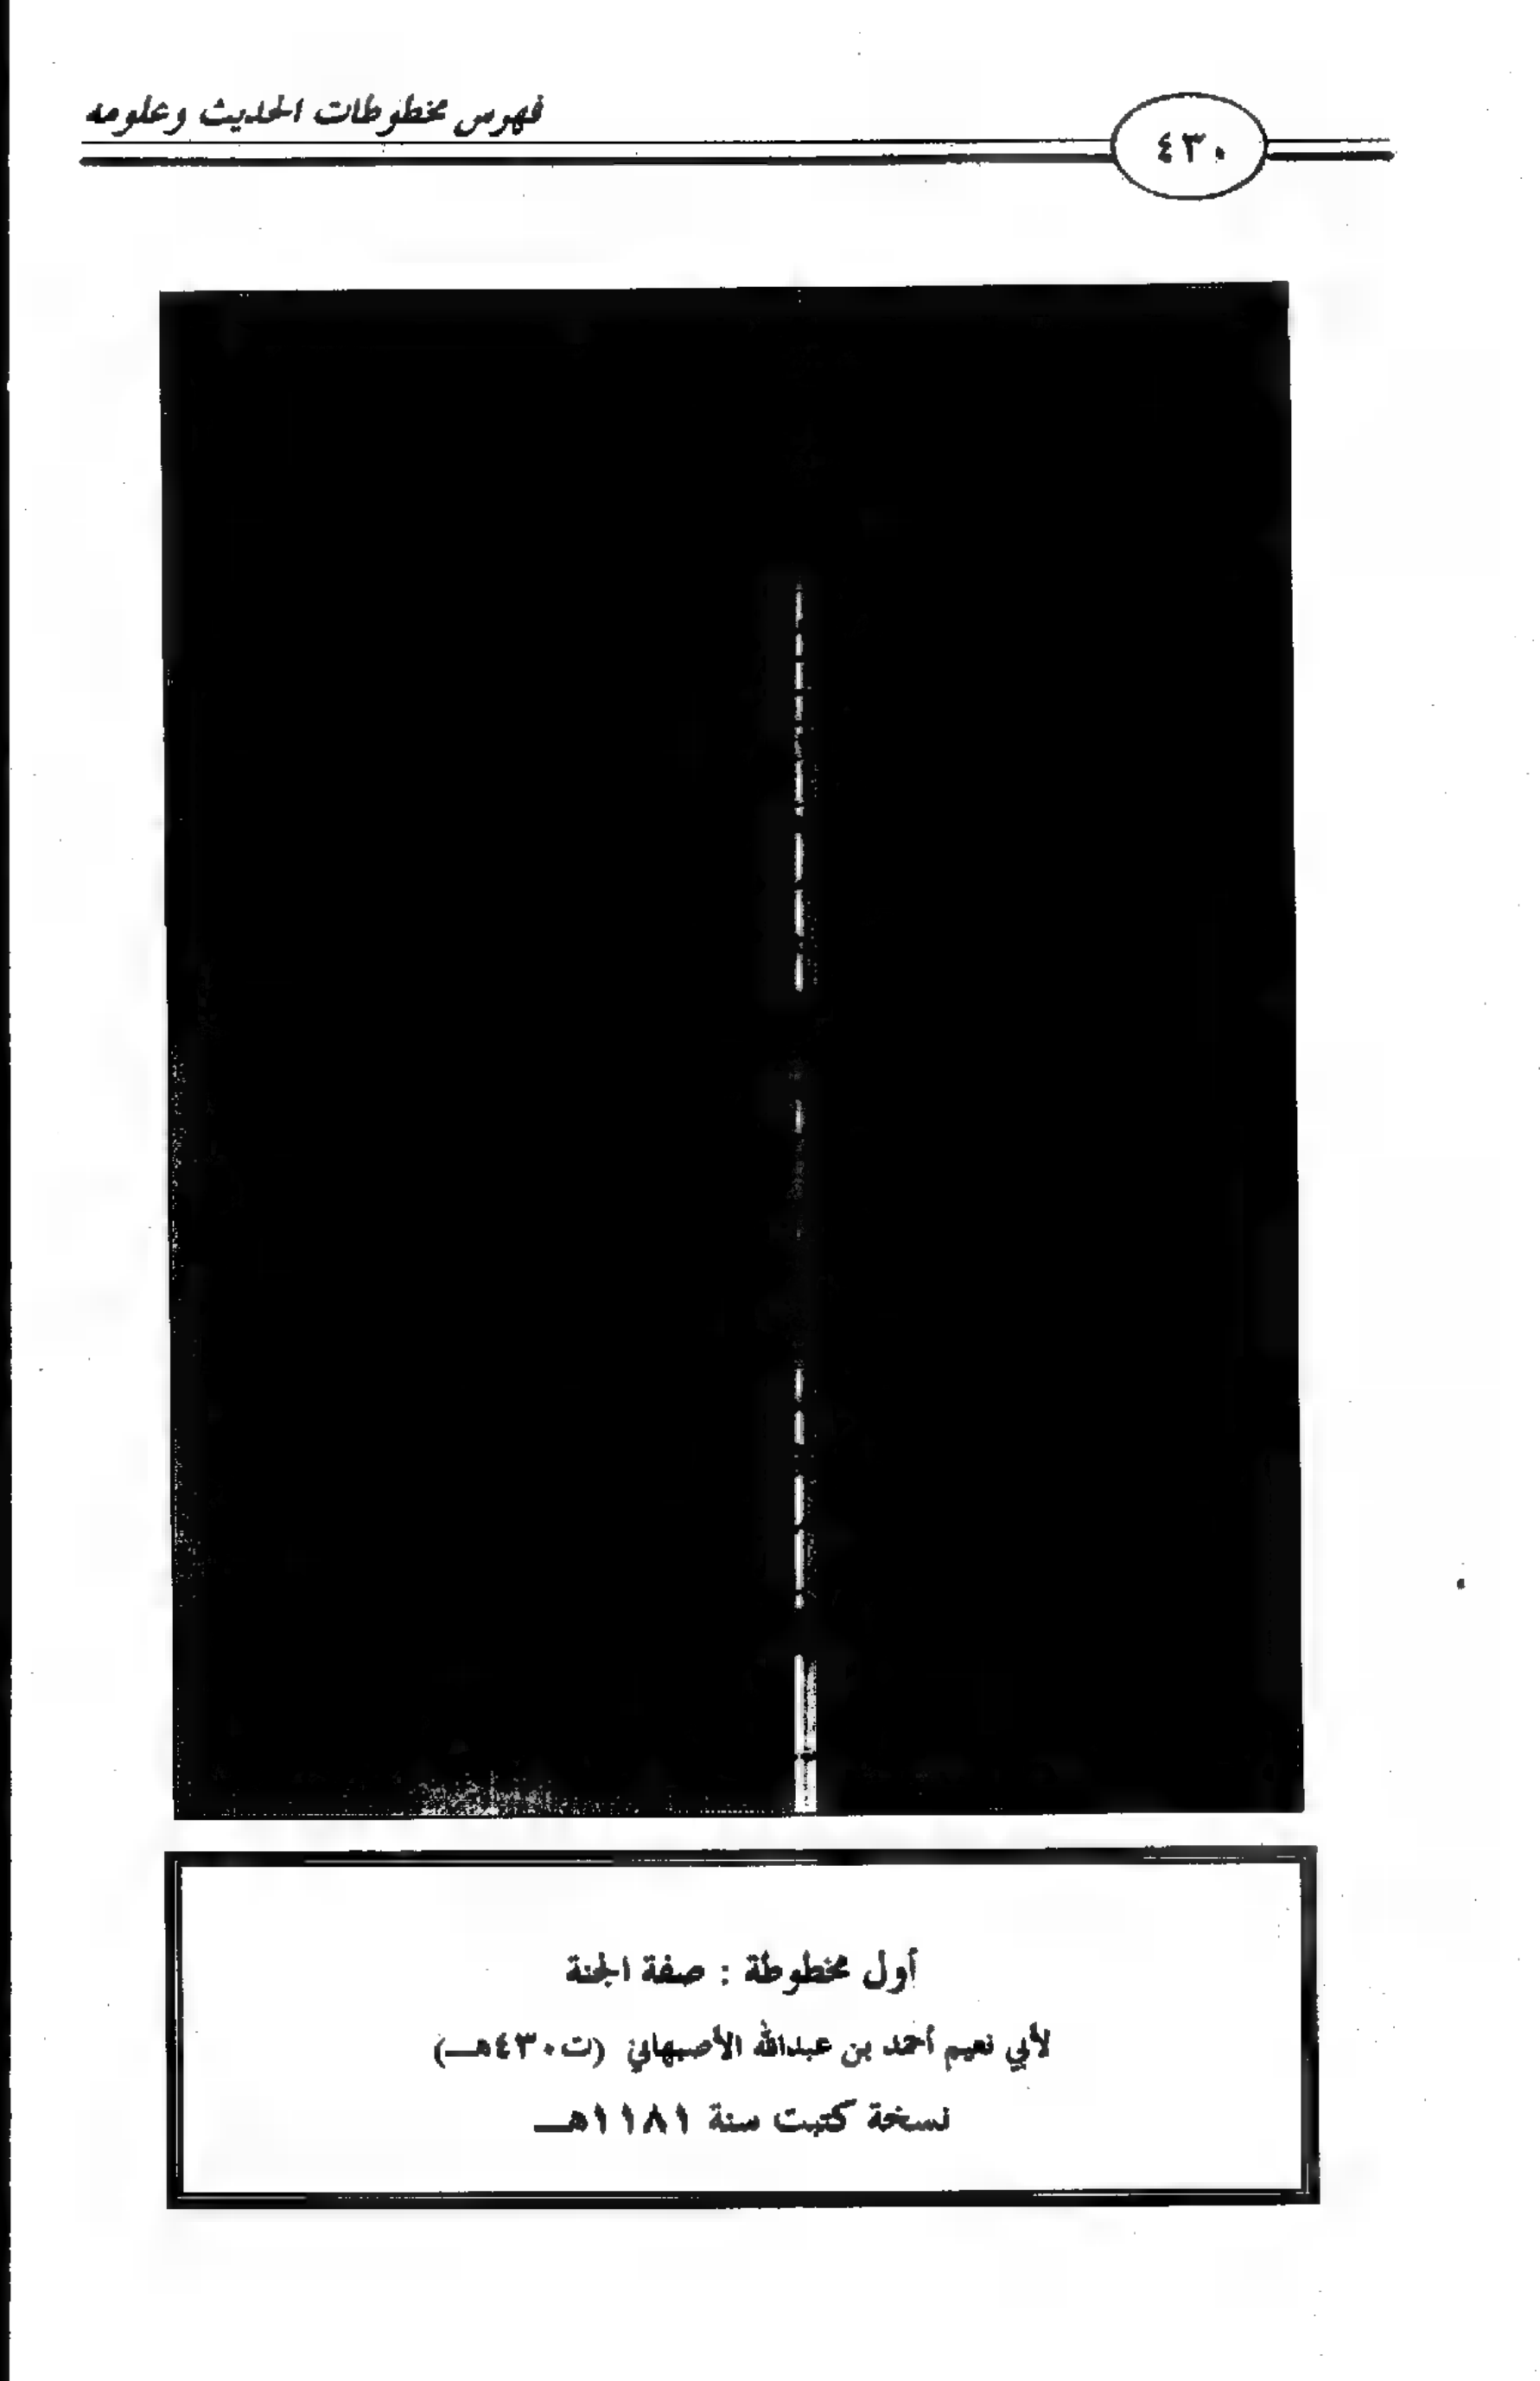 فهرس مخطوطات الحديث وعلومه
٤٣٠
أول مخطوطة : صفة الجنة
لأبي نعيم أحمد بن عبدالله الأصبهاني (ت٤٣٠هــ)
نسخة كتبت سنة ١١٨١هــ